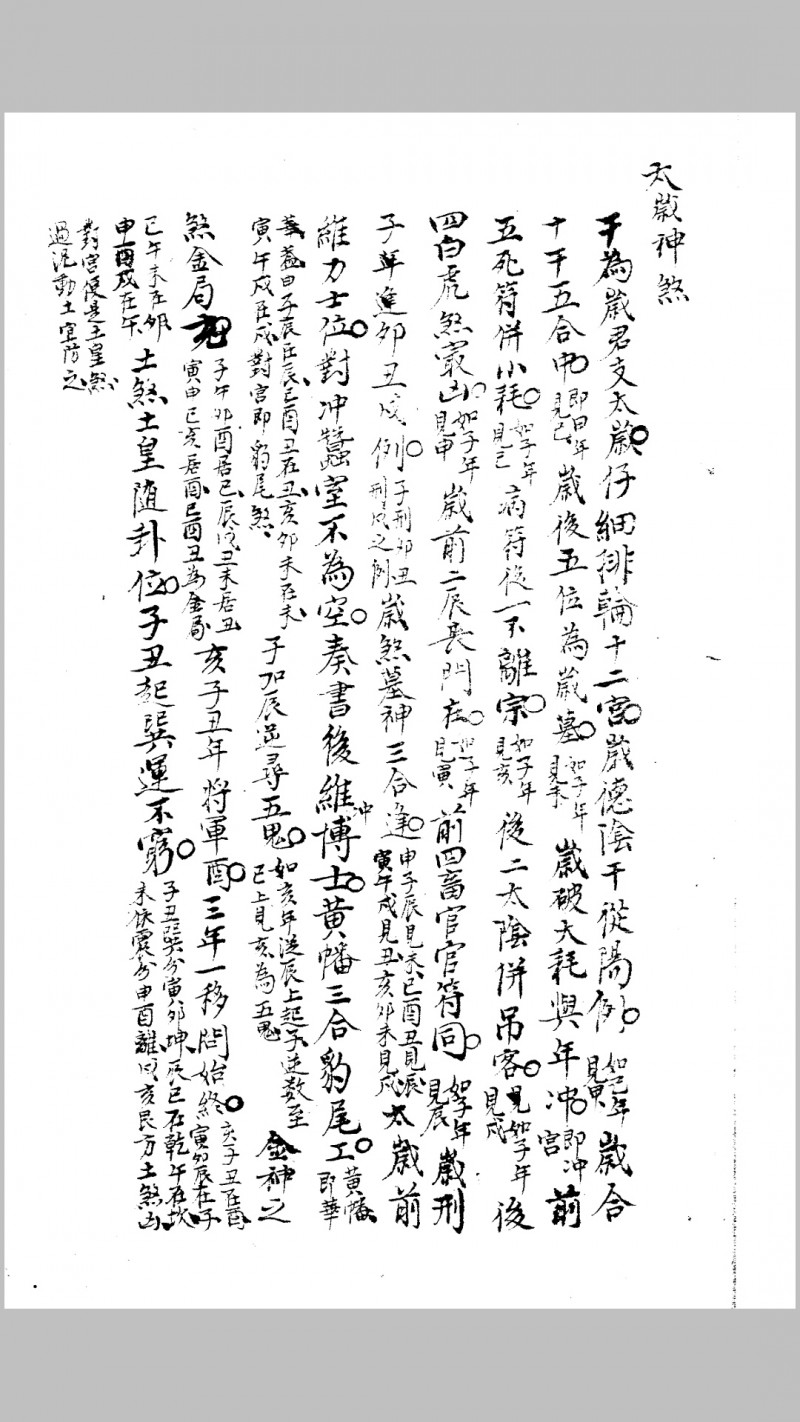 太歲神煞
干為歲君支太歲○仔細徘輪十二宮○歲德陰干從陽例○如己年見甲歲合
十干五合中○即甲年見己歲後五位為歲墓○如子年見未歲破大耗與年冲○即冲宮前
五死符併小耗○如子年見巳病符後一不離宗○如子年見亥後二太陰併吊客○如子年見戌後
四白虎煞最凶○如子年見申歲前二辰喪門在○如子年見寅前四畜官官符同○如子年見辰歲刑
子年進卯丑戌例○子刑卯丑刑戌之例歲煞墓神三合逢○申子辰見未巳酉丑見辰寅午戌見丑亥卯未見戌太歲前
維力士位○對冲蠶室不為空○奏書後維冲博士○黃幡三合豹尾工○黃幡即華
蓋申子辰在辰巳酉丑在丑亥卯未在未寅午戌在戌對宮即豹尾煞子加辰逆尋五鬼○如亥年從辰上起子逆数至巳上見亥為五鬼金神之
煞金局子午卯酉居巳辰戌丑未居丑寅申巳亥居酉巳酉丑為金局亥子丑年將軍酉○三年一移問始終○亥子丑在酉寅卯辰在子
巳午未在卯申酉戌在午土煞土皇隨卦位○子丑起巽運不窮○子丑巽分寅卯坤辰巳在乾午在坎未依震分申酉離戌亥艮方土煞凶
對宮便是土皇煞
過犯動土宜防之